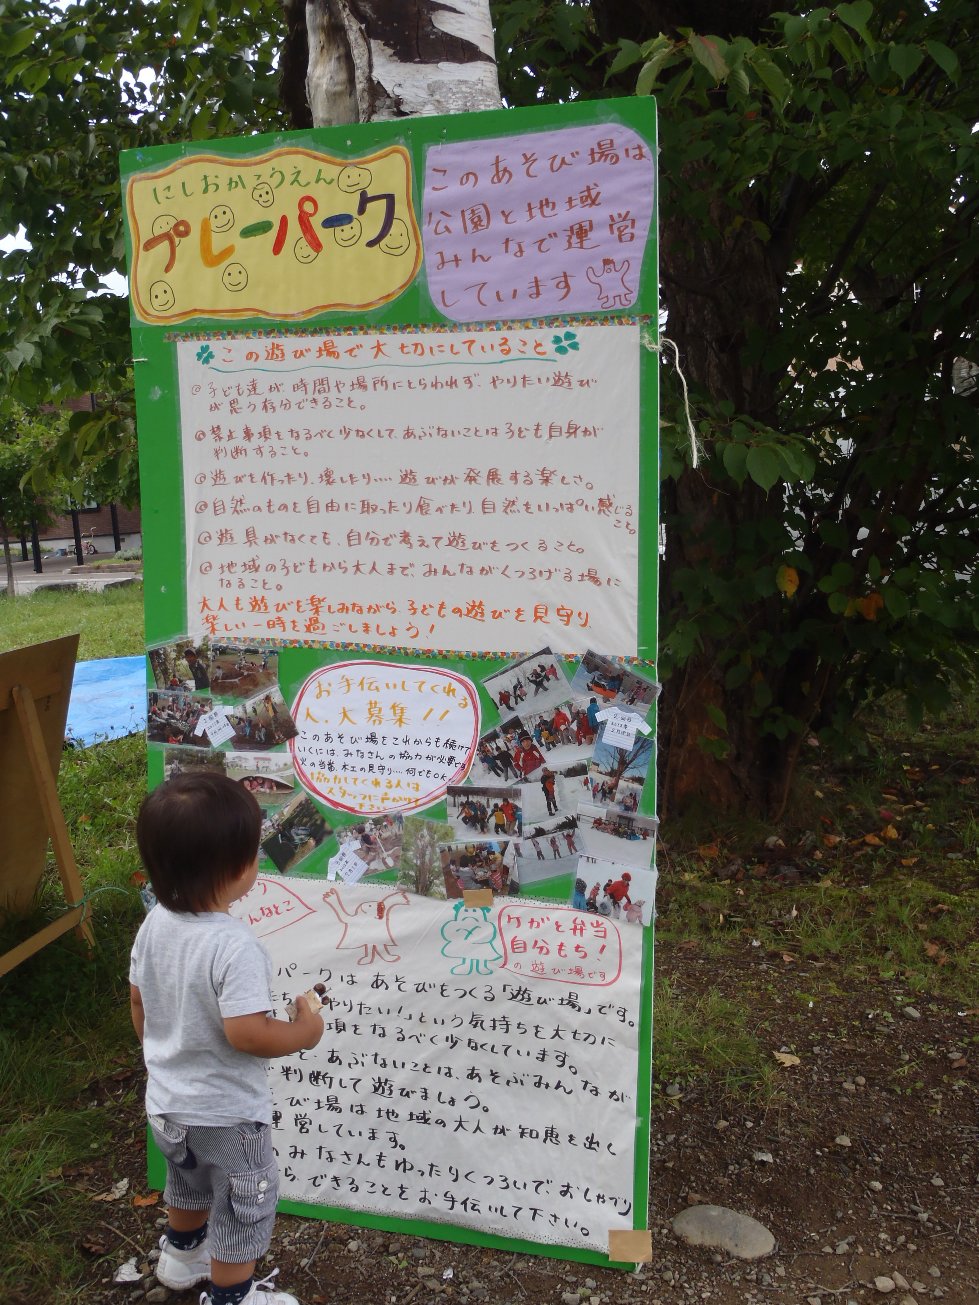 にしおかこうえん
プレーパーク
このあそび場は
公園と地域
みんなで運営
しています
この遊び場で大切にしていること
@子ども達が、時間や場所にとらわれず、やりたい遊び
が思う存分できること。
@禁止事項をなるべく少なくして、あぶないことは子ども自身が
判断すること。
@遊びを作ったり、壊したり…遊びが発展する楽しさ。
@自然のものを自由に取ったり食べたり、自然をいっぱい感じる
こと。
@遊具がなくても、自分で考えて遊びをつくること。
@地域の子どもから大人まで、みんながくつろげる場に
なること。
大人も遊びを楽しみながら、子どもの遊びを見守り、
楽しい一時を過ごしましょう!
お手伝いしてくれる
人、大募集!!
このあそび場をこれからも続けて
いくには、みなさんの協力が必要です
火の当番、木工の見守り…何でもOK
協力してくれる人は
スタッフに声かけて
下さい
んなとこ
ケガと弁当
自分もち!
の遊び場です
パークはあそびをつくる「遊び場」です。
やりたい!」という気持ちを大切に
項をなるべく少なくしています。
と、あぶないことは、あそぶみんなが
判断して遊びましょう。
び場は地域の大人が知恵を出し
運営しています。
のみなさんもゆったりくつろいで、おしゃべり
ら、できることをお手伝いして下さい。